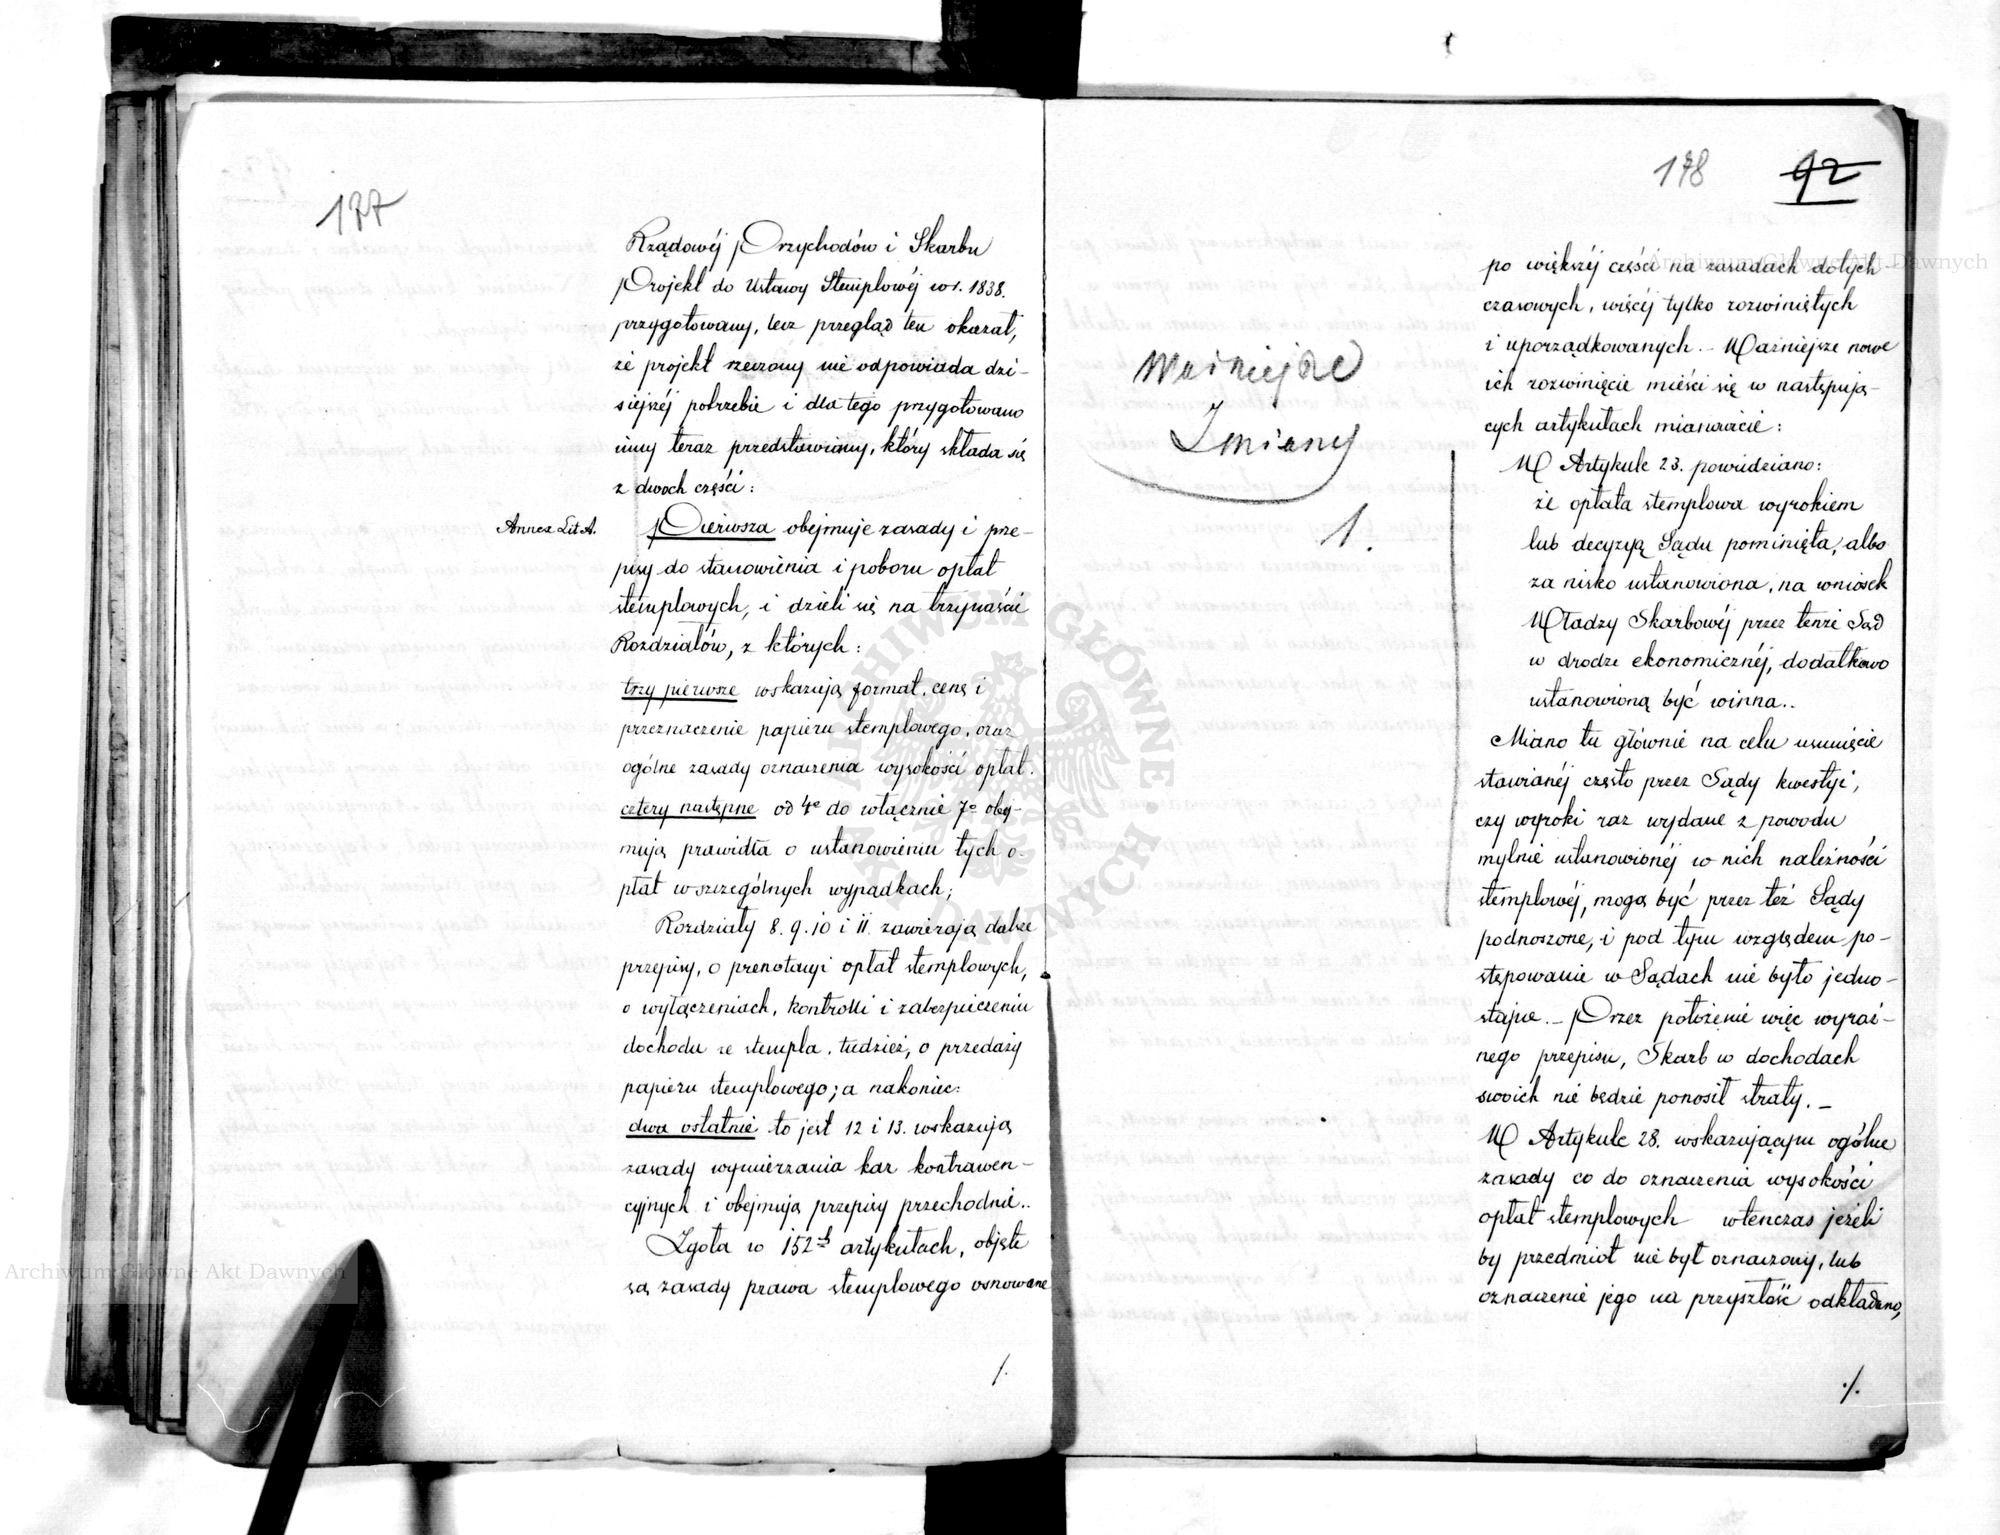 177
Rządowéj Przychodów i Skarbu
Projekt do Ustawy Stemplowéj w r. 1838.
przygotowany, lecz przegląd ten okazał,
że projekt rzeczony nie odpowiada dzi-
siejszéj potrzebie i dla tego przygotowano
inny teraz przedstawiany, który składa się
z dwóch części:
Annex Lit A.
Pierwsza obejmuje zasady i prze-
pisy do stanowienia i poboru opłat
stemplowych, i dzieli się na trzynaście
Rozdziałów, z których:
trzy pierwsze wskazują format, cenę i
przeznaczenie papieru stemplowego, oraz
ogólne zasady oznaczenia wysokości opłat.
cztery następne od 4o do włącznie 7o obej-
mują prawidła o ustanowieniu tych o-
płat w szczególnych wypadkach;
Rozdziały 8. 9. 10 i 11. zawierają dalsze
przepisy, o prenotacyi opłat stemplowych,
o wyłączeniach, kontrolli i zabezpieczeniu
dochodu ze stempla, tudzież, o przedaży
papieru stemplowego; a nakoniec:
dwa ostatnie to jest 12 i 13. wskazują
zasady wymierzania kar kontrawen-
cyjnych i obejmują przepisy przechodnie..
Zgoła w 152ch artykułach, objęte
są zasady prawa stemplowego osnowane
/.
178 92
Ważniejsze
Zmiany
1.
po większéj części na zasadach dotych-
czasowych, więcéj tylko rozwiniętych
i uporządkowanych. – Ważniejsze nowe
ich rozwinięcie mieści się w następują-
cych artykułach mianowicie:
W Artykule 23. powiedziano:
że opłata stemplowa wyrokiem
lub decyzyą Sądu pominięta, albo
za nisko ustanowiona, na wniosek
Władzy Skarbowéj przez tenże Sąd
w drodze ekonomicznéj, dodatkowo
ustanowioną być winna..
Miano tu głównie na celu usunięcie
stawianéj często przez Sądy kwestyi,
czy wyroki raz wydane z powodu
mylnie ustanowionéj w nich należności
stemplowéj, mogą być przez też Sądy
podnoszone, i pod tym względem po-
stępowanie w Sądach nie było jedno-
stajne. – Przez położenie więc wyraź-
nego przepisu, Skarb w dochodach
swoich nie będzie ponosił straty. –
W Artykule 28. wskazującym ogólne
zasady co do oznaczenia wysokości
opłat stemplowych wtenczas jeżeli
by przedmiot nie był oznaczony, lub
oznaczenie jego na przyszłość odkładano,
./.
Archiwum Główne Akt Dawnych
Archiwum Główne Akt Dawnych
ARCHIWUM GŁÓWNE • AKT DAWNYCH •